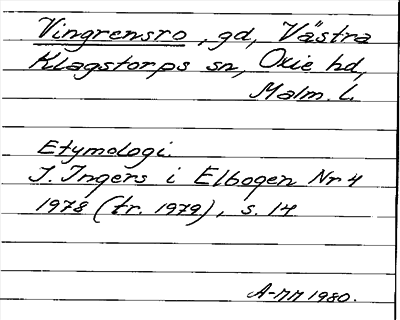 Vingrensro, gd, Västra
Klagstorps sn, Oxie hd,
Malm. L.
Etymologi.
I. Ingers i Elbogen Nr 4
1978 (tr. 1979), s. 14
A-MM 1980.